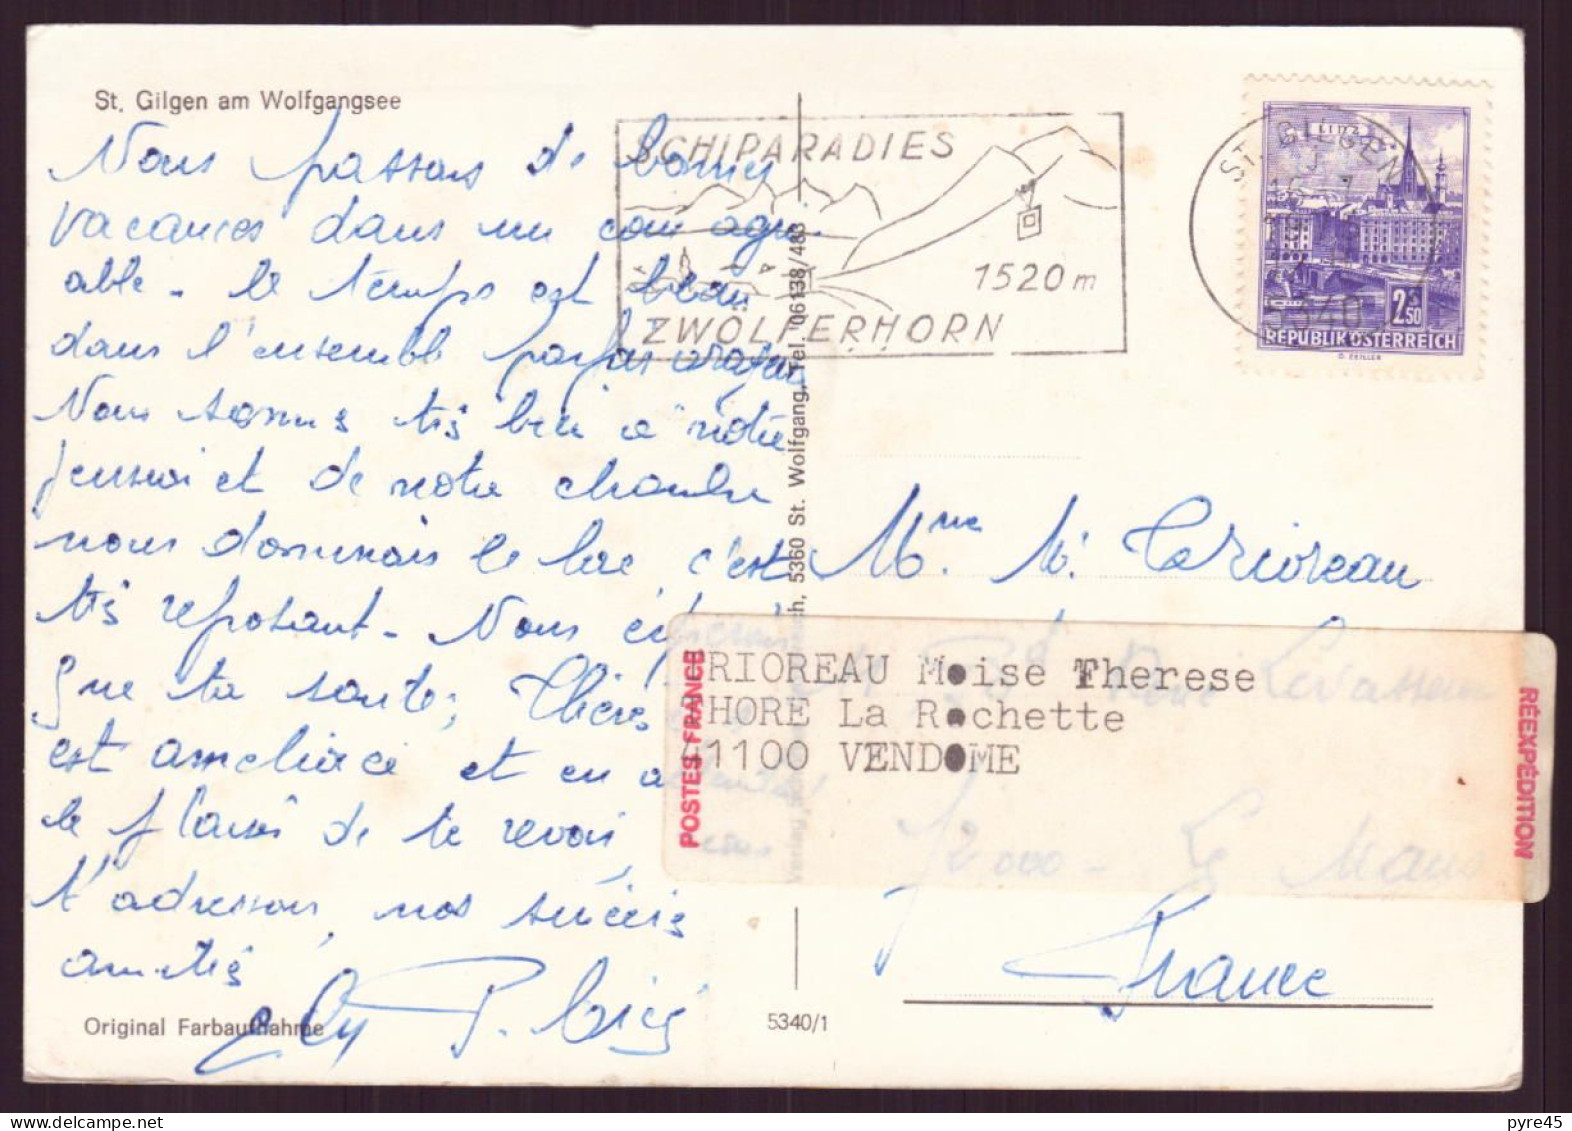 St. Gilgen am Wolfgangsee
Nous passons de bonnes
vacances dans un coin agré-
able - le temps est beau
dans l'ensemble parfois orageux
Nous sommes très bien à notre
pension et de notre chambre
nous dominons le lac, c'est
très reposant - Nous
que ta santé,
est améliorée et en
le plaisir de te revoir,
t'adressons nos sincères
amitiés
Original Farbaufnahme
5340/1
Tel. 06138/483
5360 St. Wolfgang,
Verlag
SCHIPARADIES
1520 m
ZWÖLFERHORN
ST. GILGEN
5340
LINZ
2.50
REPUBLIK ÖSTERREICH
Mme M. Th. Crioreau
Bd René Levasseur
72000 - Le Mans
France
POSTES FRANCE
RIOREAU Moise Therese
HORE La Rochette
41100 VENDOME
RÉEXPÉDITION
pyre45